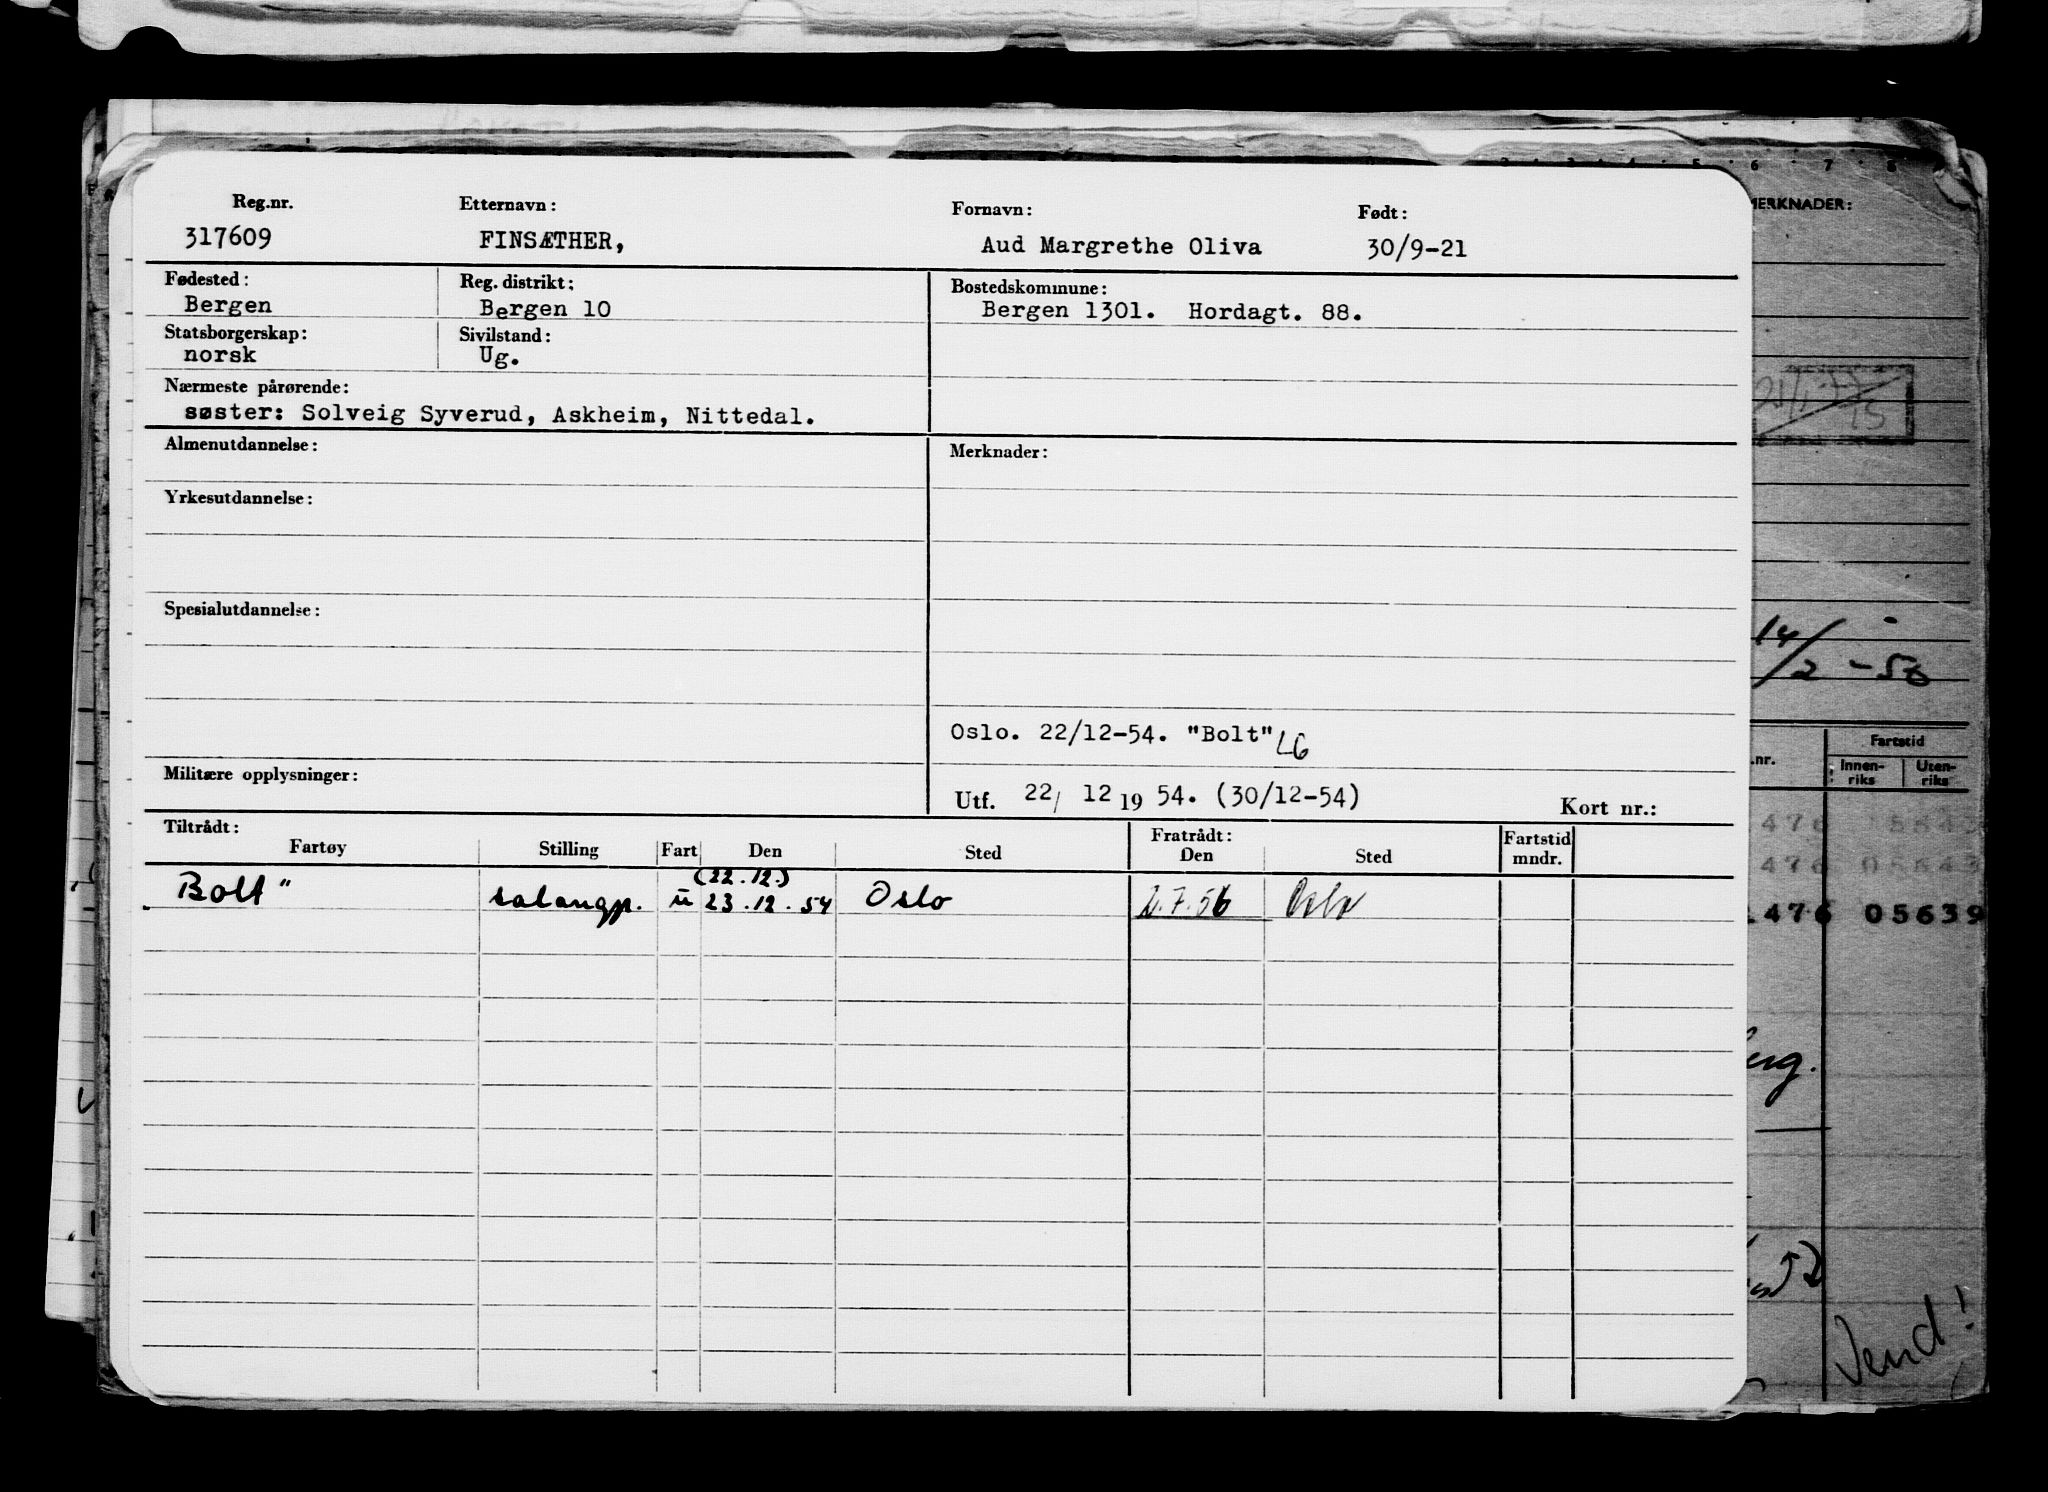 Reg.nr. Etternavn: Fornavn: Født:
317609 FINSÆTHER, Aud Margrethe Oliva 30/9-21
Fødested: Reg. distrikt: Bostedskommune:
Bergen Bergen 10 Bergen 1301. Hordagt. 88.
Statsborgerskap: Sivilstand:
norsk Ug.
Nærmeste pårørende:
søster: Solveig Syverud, Askheim, Nittedal.
Almenutdannelse: Merknader:
Yrkesutdannelse:
Spesialutdannelse:
Oslo. 22/12-54. "Bolt" LG
Militære opplysninger:
Utf. 22/ 12 19 54. (30/12-54) Kort nr.:
Tiltrådt: Fratrådt: Fartstid
Fartøy Stilling Fart Den Sted Den Sted mndr.
(22.12.)
„Bolt" salongp. u 23.12.54 Oslo 2.7.56 Oslo
5 6 7 8
MERKNADER:
14/2 - 56
.nr. Fartstid
Innen-riks Uten-riks
476 0564
476 05643
.476 05639
Vend!